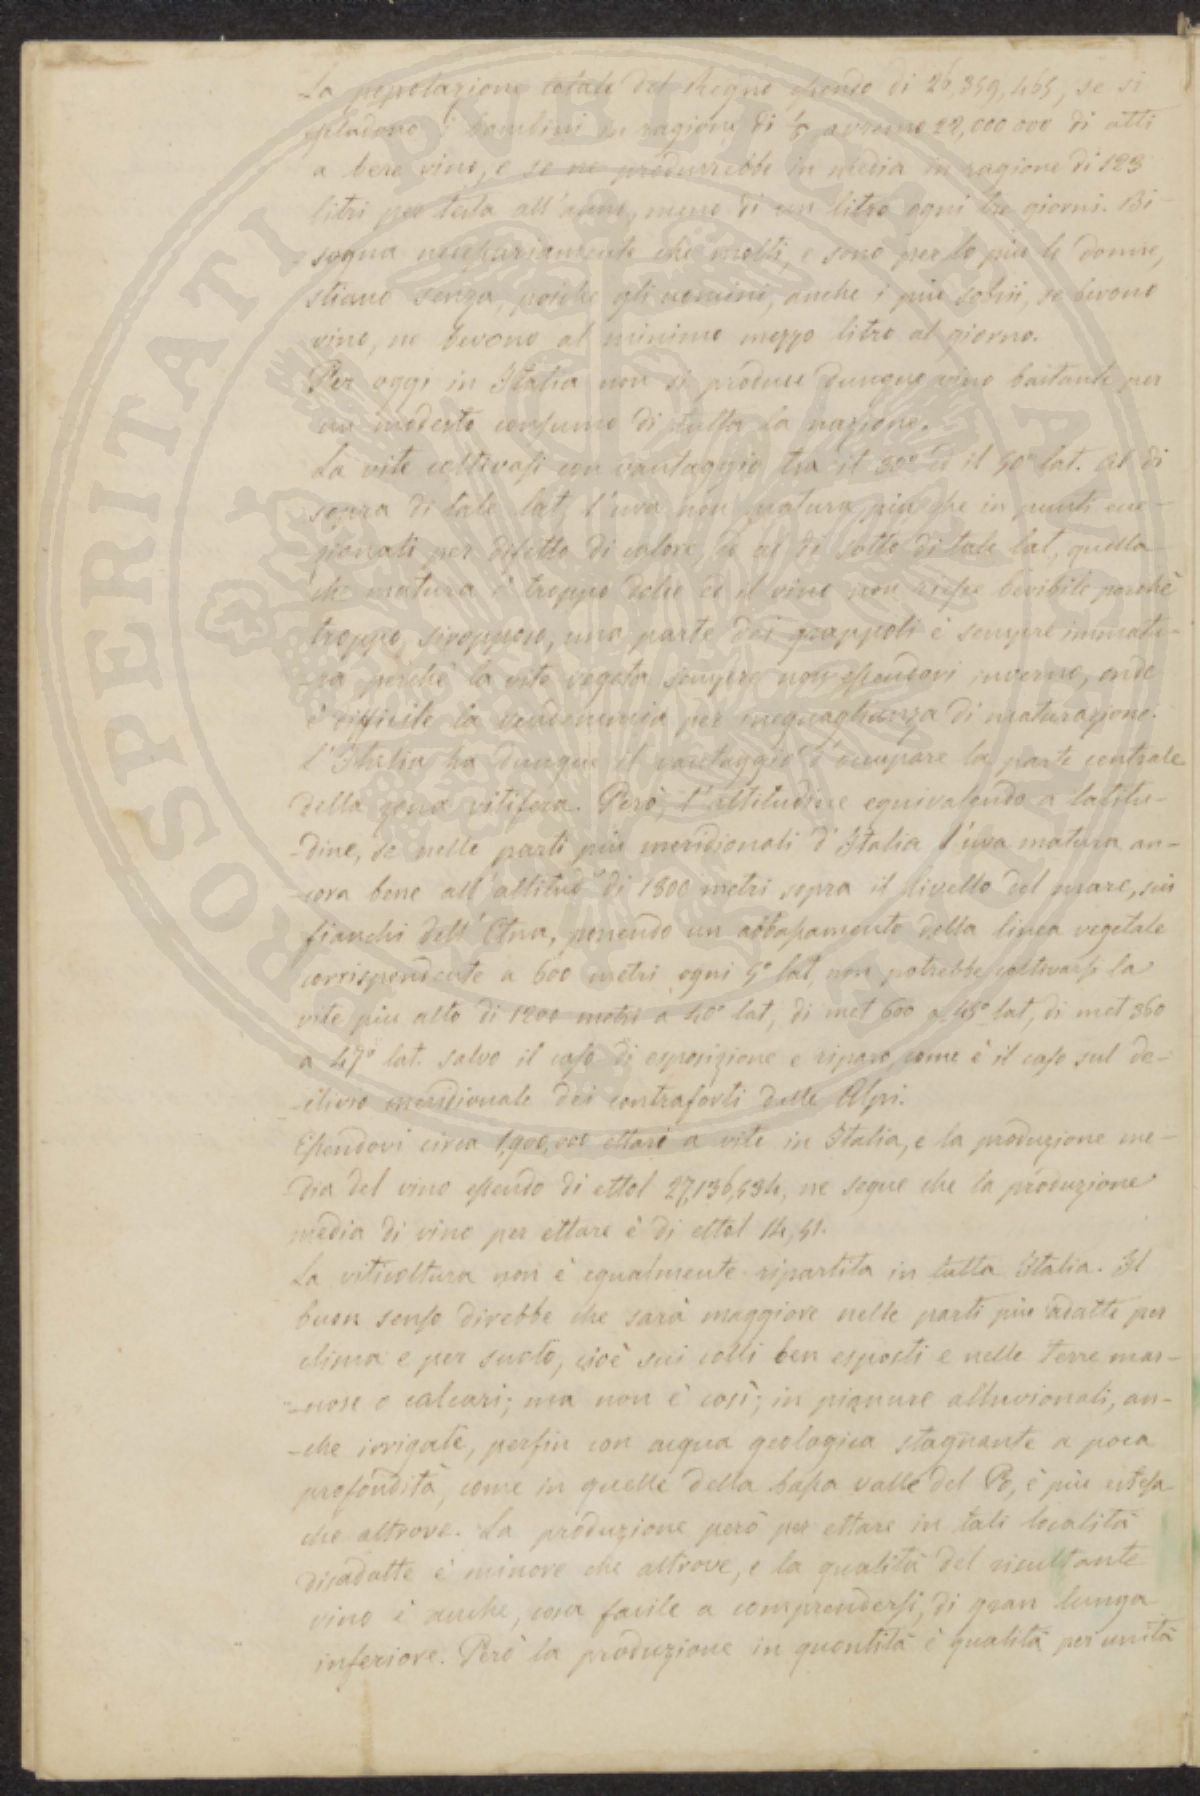 La popolazione totale del Regno essendo di 26,859,465, se si
escludono i bambini in ragione di 1/5 avremo 22,000 000 di atti
a bere vino, e se ne produrrebbe in media in ragione di 123
litri per testa all'anno, meno di un litro ogni tre giorni. Bi-
sogna necessariamente che molti, e sono per lo più le donne,
stiano senza, poiche gli uomini, anche i più sobrii, se bevono
vino, ne bevono al minimo mezzo litro al giorno.
Per oggi in Italia non si produce dunque vino bastante per
un modesto consumo di tutta la nazione.
La vite coltivasi con vantaggio tra il 30° ed il 50° lat. Al di
sopra di tale lat, l'uva non matura più che in punti ecce-
zionali per difetto di calore, ed al di sotto di tale lat, quella
che matura è troppo dolce ed il vino non riesce bevibile perchè
troppo sciropposo, una parte dei grappoli è sempre immatu-
-ra perchè la vite vegeta sempre non essendovi inverno, onde
è difficile la vendemmia per ineguaglianza di maturazione.
L'Italia ha dunque il vantaggio d'occupare la parte centrale
della zona vitifera. Però, l'altitudine equivalendo a latitu-
-dine, se nelle parti più meridionali d'Italia l'uva matura an-
-cora bene all'altitude di 1800 metri sopra il livello del mare, sui
fianchi dell'Etna, ponendo un abbassamento della linea vegetale
corrispondente a 600 metri ogni 5° lat, non potrebbe coltivarsi la
vite più alto di 1200 metri a 40° lat, di met 600 a 45° lat, di met 360
a 47° lat. salvo il caso di esposizione e riparo, come è il caso sul de-
-clivio meridionale dei contraforti delle Alpi.
Essendovi circa 1,900,000 ettari a vite in Italia, e la produzione me-
-dia del vino essendo di ettol 27,136,534, ne segue che la produzione
media di vino per ettare è di ettol 14,51.
La viticoltura non è egualmente ripartita in tutta Italia. Il
buon senso direbbe che sarà maggiore nelle parti più adatte per
clima e per suolo, cioè sui colli ben esposti e nelle terre mar-
-nose e calcari; ma non è così; in pianure alluvionali, an-
-che irrigate, perfin con acqua geologica stagnante a poca
profondità, come in quelle della bassa valle del Po, è più estesa
che altrove. La produzione però per ettare in tali località
disadatte è minore che altrove, e la qualità del risultante
vino è anche, cosa facile a comprendersi, di gran lunga
inferiore. Però la produzione in quantità e qualità per unità
PUBLICAE
PROSPERITATI